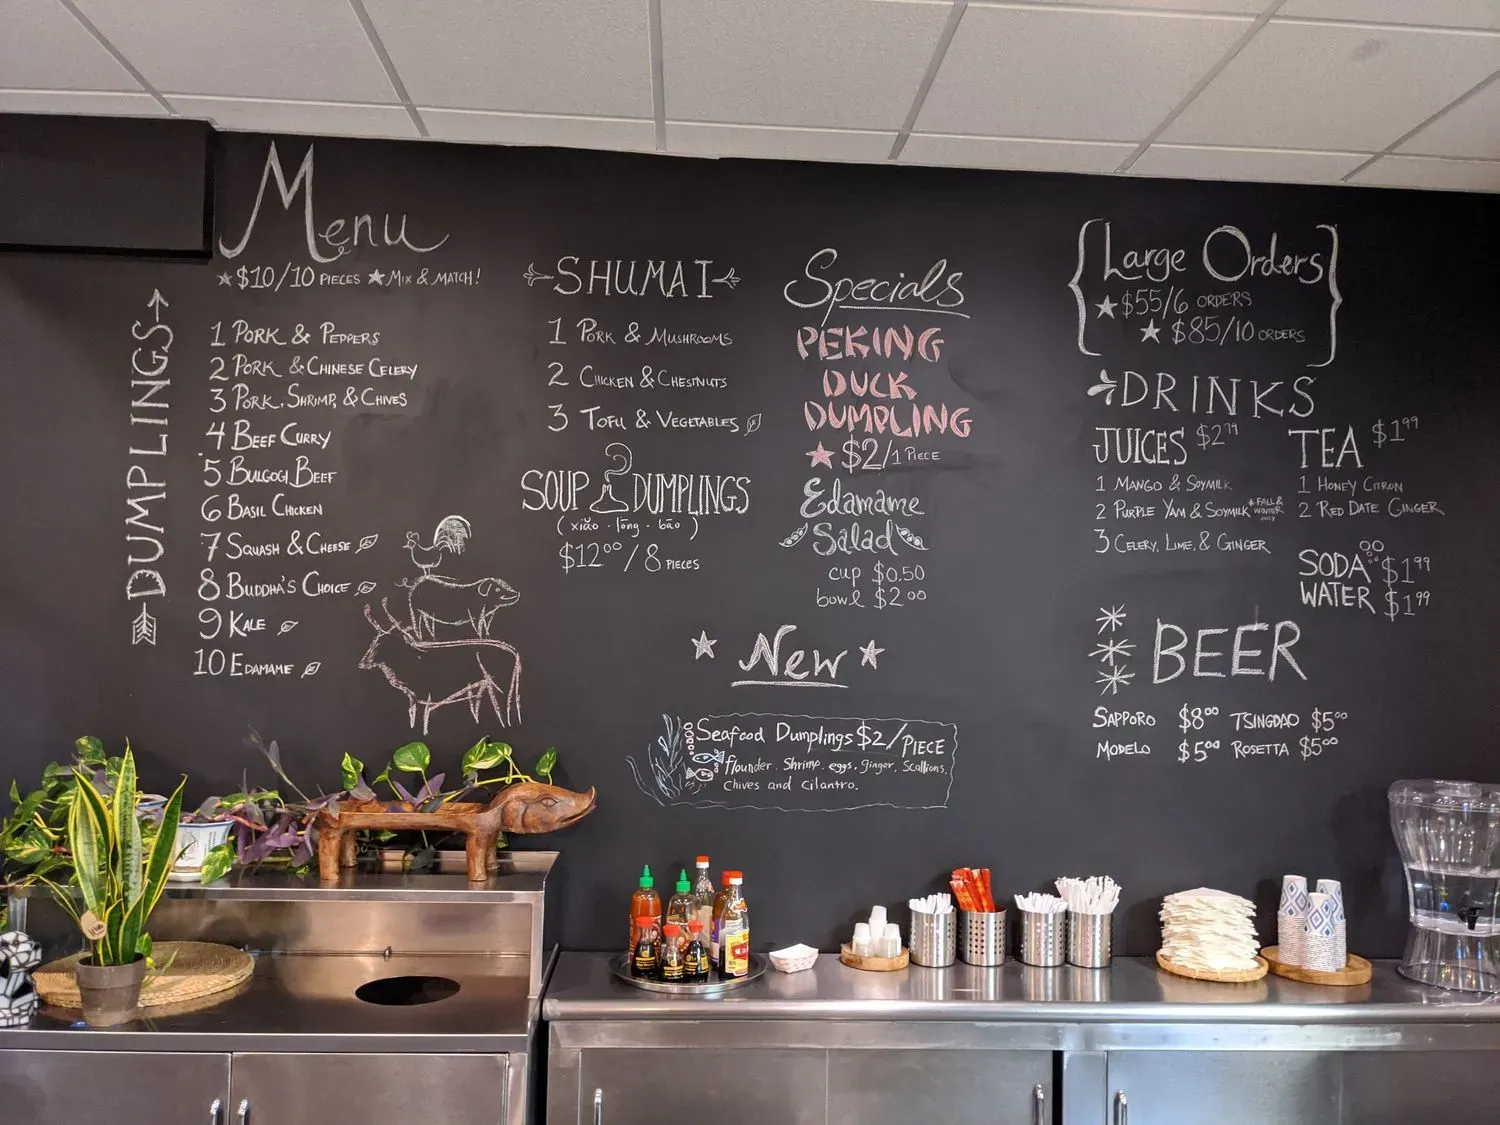 Menu
$10/10 PIECES MIX & MATCH!
DUMPLINGS
1 PORK & PEPPERS
2 PORK & CHINESE CELERY
3 PORK, SHRIMP, & CHIVES
4 BEEF CURRY
5 BULGOGI BEEF
6 BASIL CHICKEN
7 SQUASH & CHEESE
8 BUDDHA'S CHOICE
9 KALE
10 EDAMAME
SHUMAI
1 PORK & MUSHROOMS
2 CHICKEN & CHESTNUTS
3 TOFU & VEGETABLES
SOUP DUMPLINGS
(xiǎo · lóng · bāo)
$12⁰⁰/8 PIECES
Specials
PEKING
DUCK
DUMPLING
$2/1 PIECE
Edamame
Salad
cup $0.50
bowl $2.00
New
Seafood Dumplings $2/PIECE
flounder, Shrimp, eggs, ginger, Scallions,
Chives and Cilantro.
Large Orders
$55/6 ORDERS
$85/10 ORDERS
DRINKS
JUICES
1 MANGO & SOYMILK
2 PURPLE YAM & SOYMILK *FALL &
WINTER
ONLY
3 CELERY, LIME, & GINGER
TEA $1⁹⁹
1 HONEY CITRON
2 RED DATE GINGER
SODA $1⁹⁹
WATER $1⁹⁹
BEER
SAPPORO $8⁰⁰ TSINGDAO $5⁰⁰
MODELO $5⁰⁰ ROSETTA $5⁰⁰